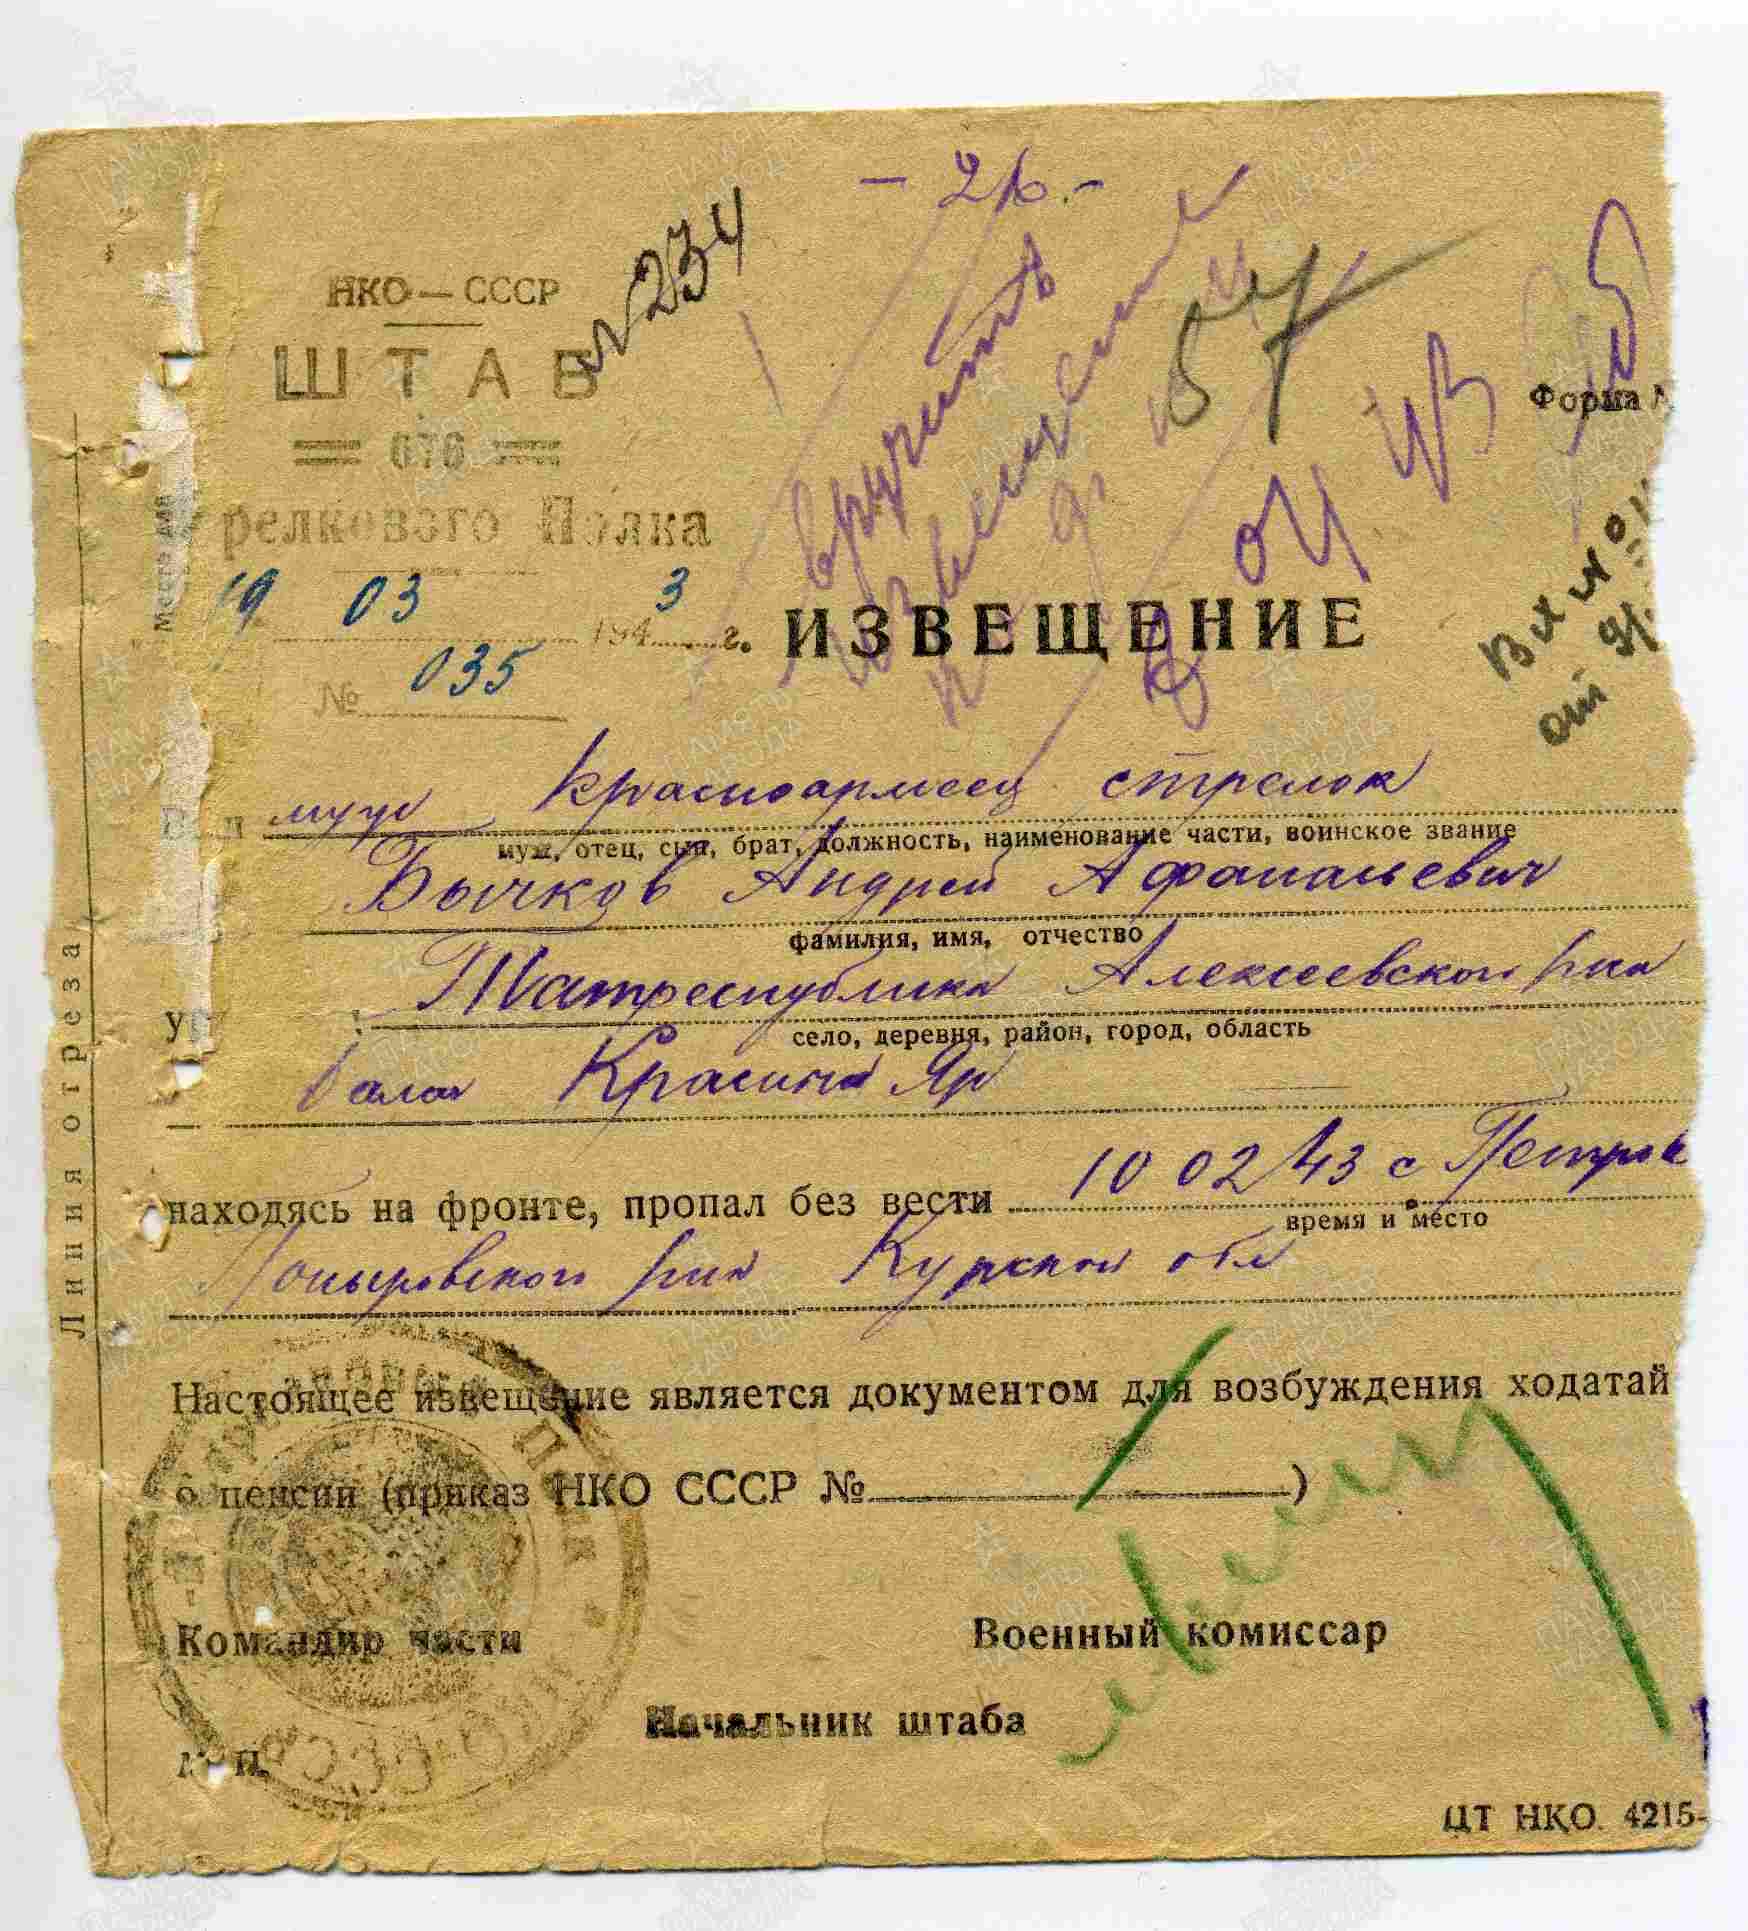 - 2 /б. -
№ 234
НКО — СССР
ШТАБ
676
релкового Полка
19 03 1943 г.
№ 035
вручить
извещение
57
Форма №
Вх №
от
ИЗВЕЩЕНИЕ
муж красноармеец стрелок
муж, отец, сын, брат, должность, наименование части, воинское звание
Бычков Андрей Афанасьевич
фамилия, имя, отчество
ур
Татреспублика Алексеевского р-на
село, деревня, район, город, область
Красный Яр
находясь на фронте, пропал без вести 10 02 43 с Петров
время и место
Поныровского р-на Курской обл
Настоящее извещение является документом для возбуждения ходатай
о пенсии (приказ НКО СССР № )
Командир части
Военный комиссар
Начальник штаба
М. П.
ЦТ НКО. 4215-
Линия отреза
ПАМЯТЬ НАРОДА